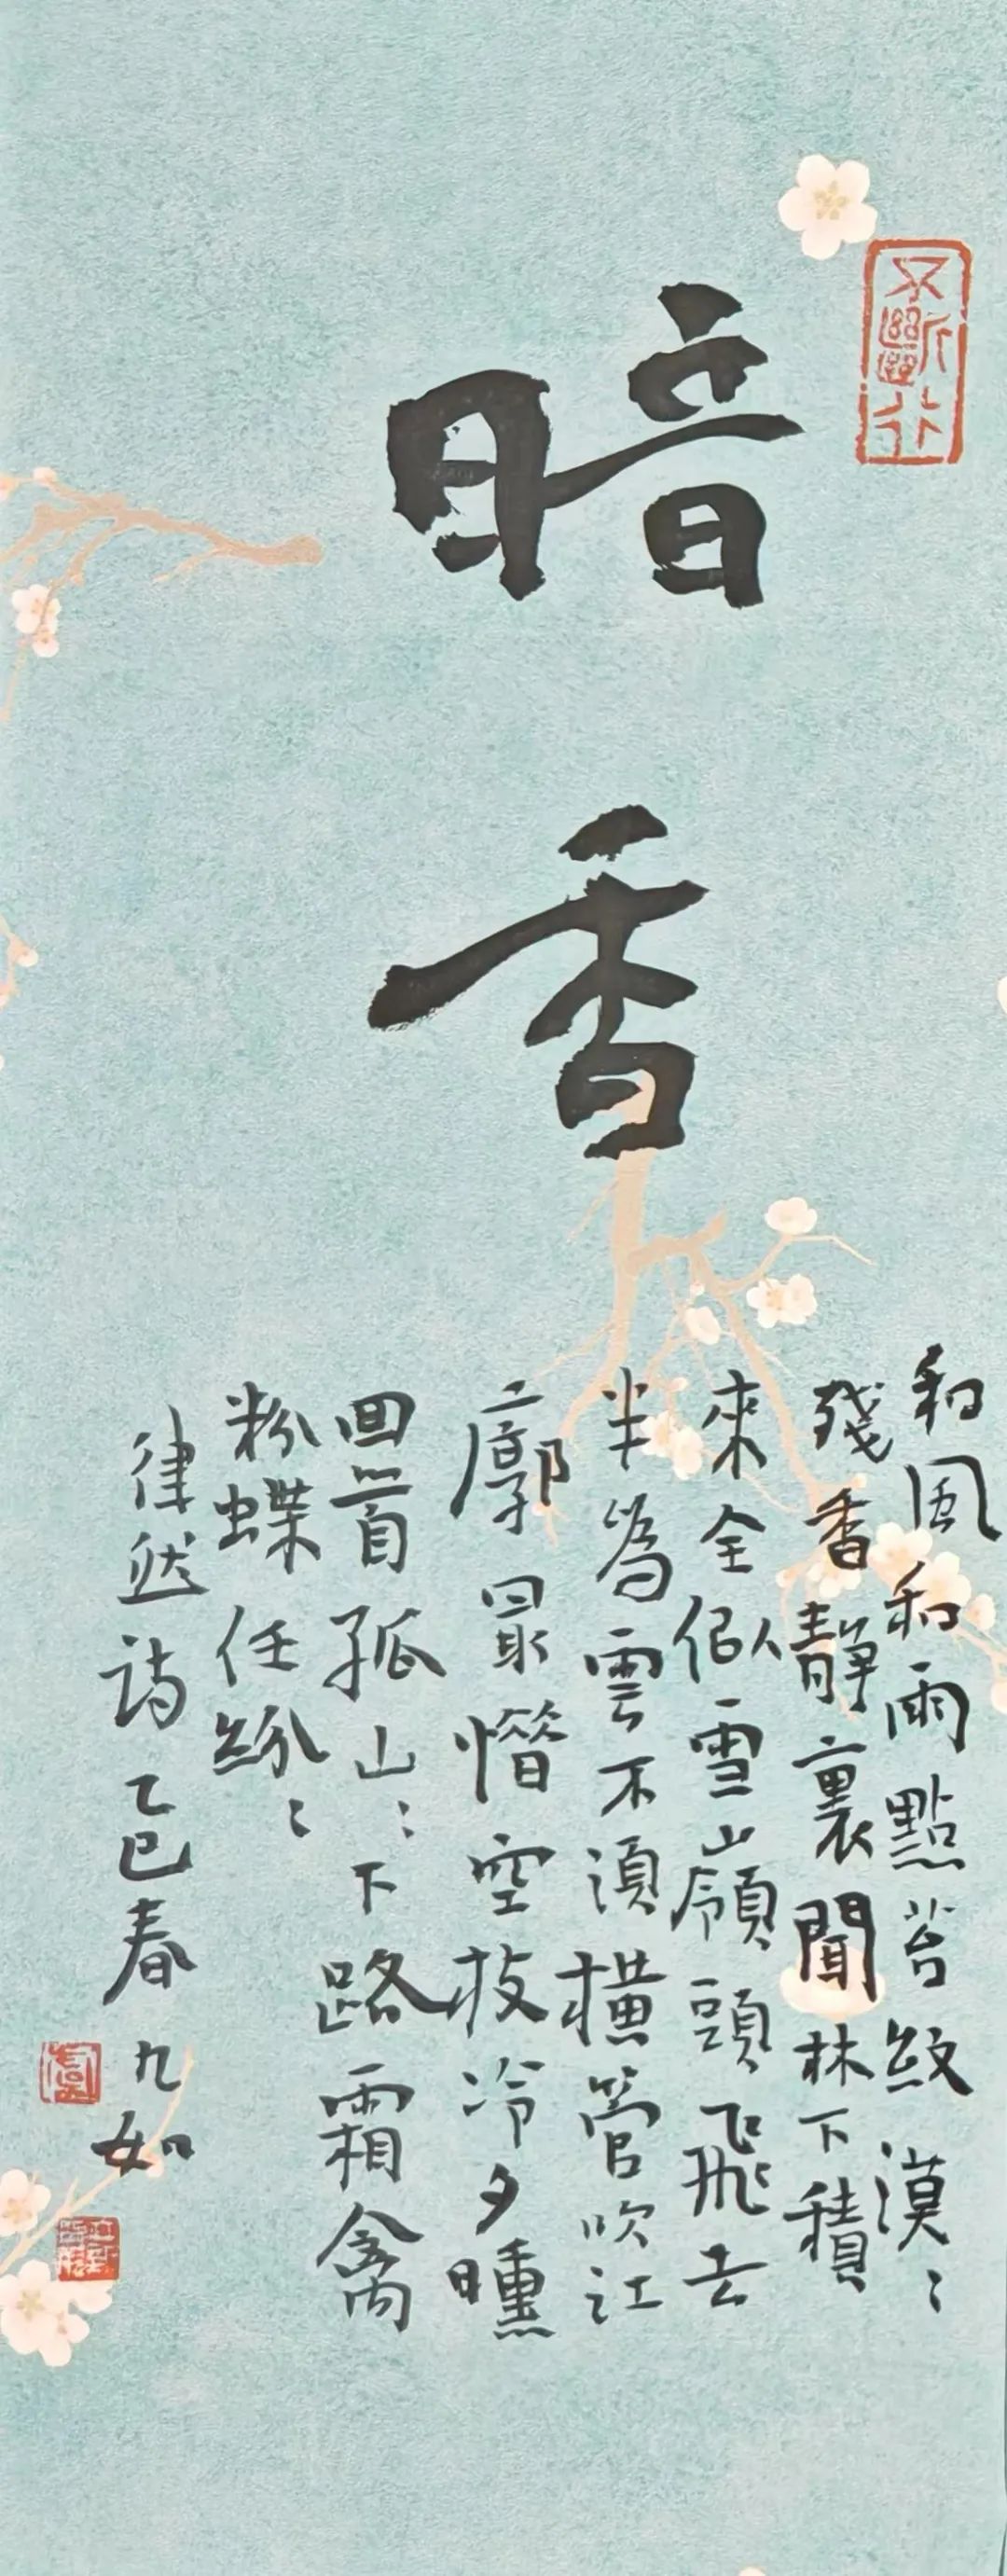 暗香
和風和雨點苔紋漠〻
殘香靜裏聞林下積
來全似雪嶺頭飛去
半為雲不須橫管吹江
廓冣憯空枝冷夕曛
回首孤山〻下路霜禽
粉蝶任紛〻
律然詩乙巳春九如
不斷